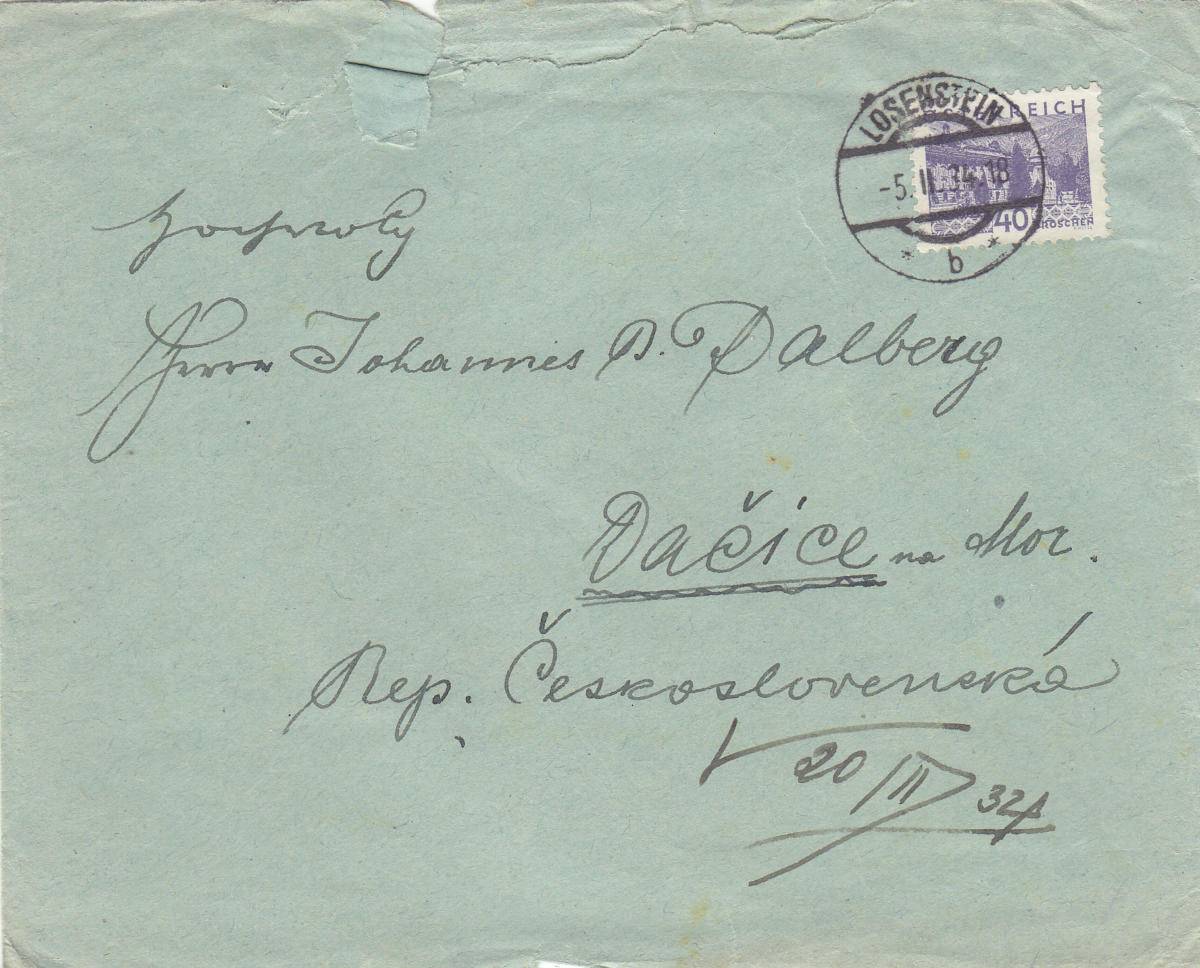 LOSENSTEIN
REICH
-5.II.34.18
40 GROSCHEN
* b *
Hochwolg
Herrn Johannes B. Dalberg
Dačice na Mor.
Rep. Československá
20/II